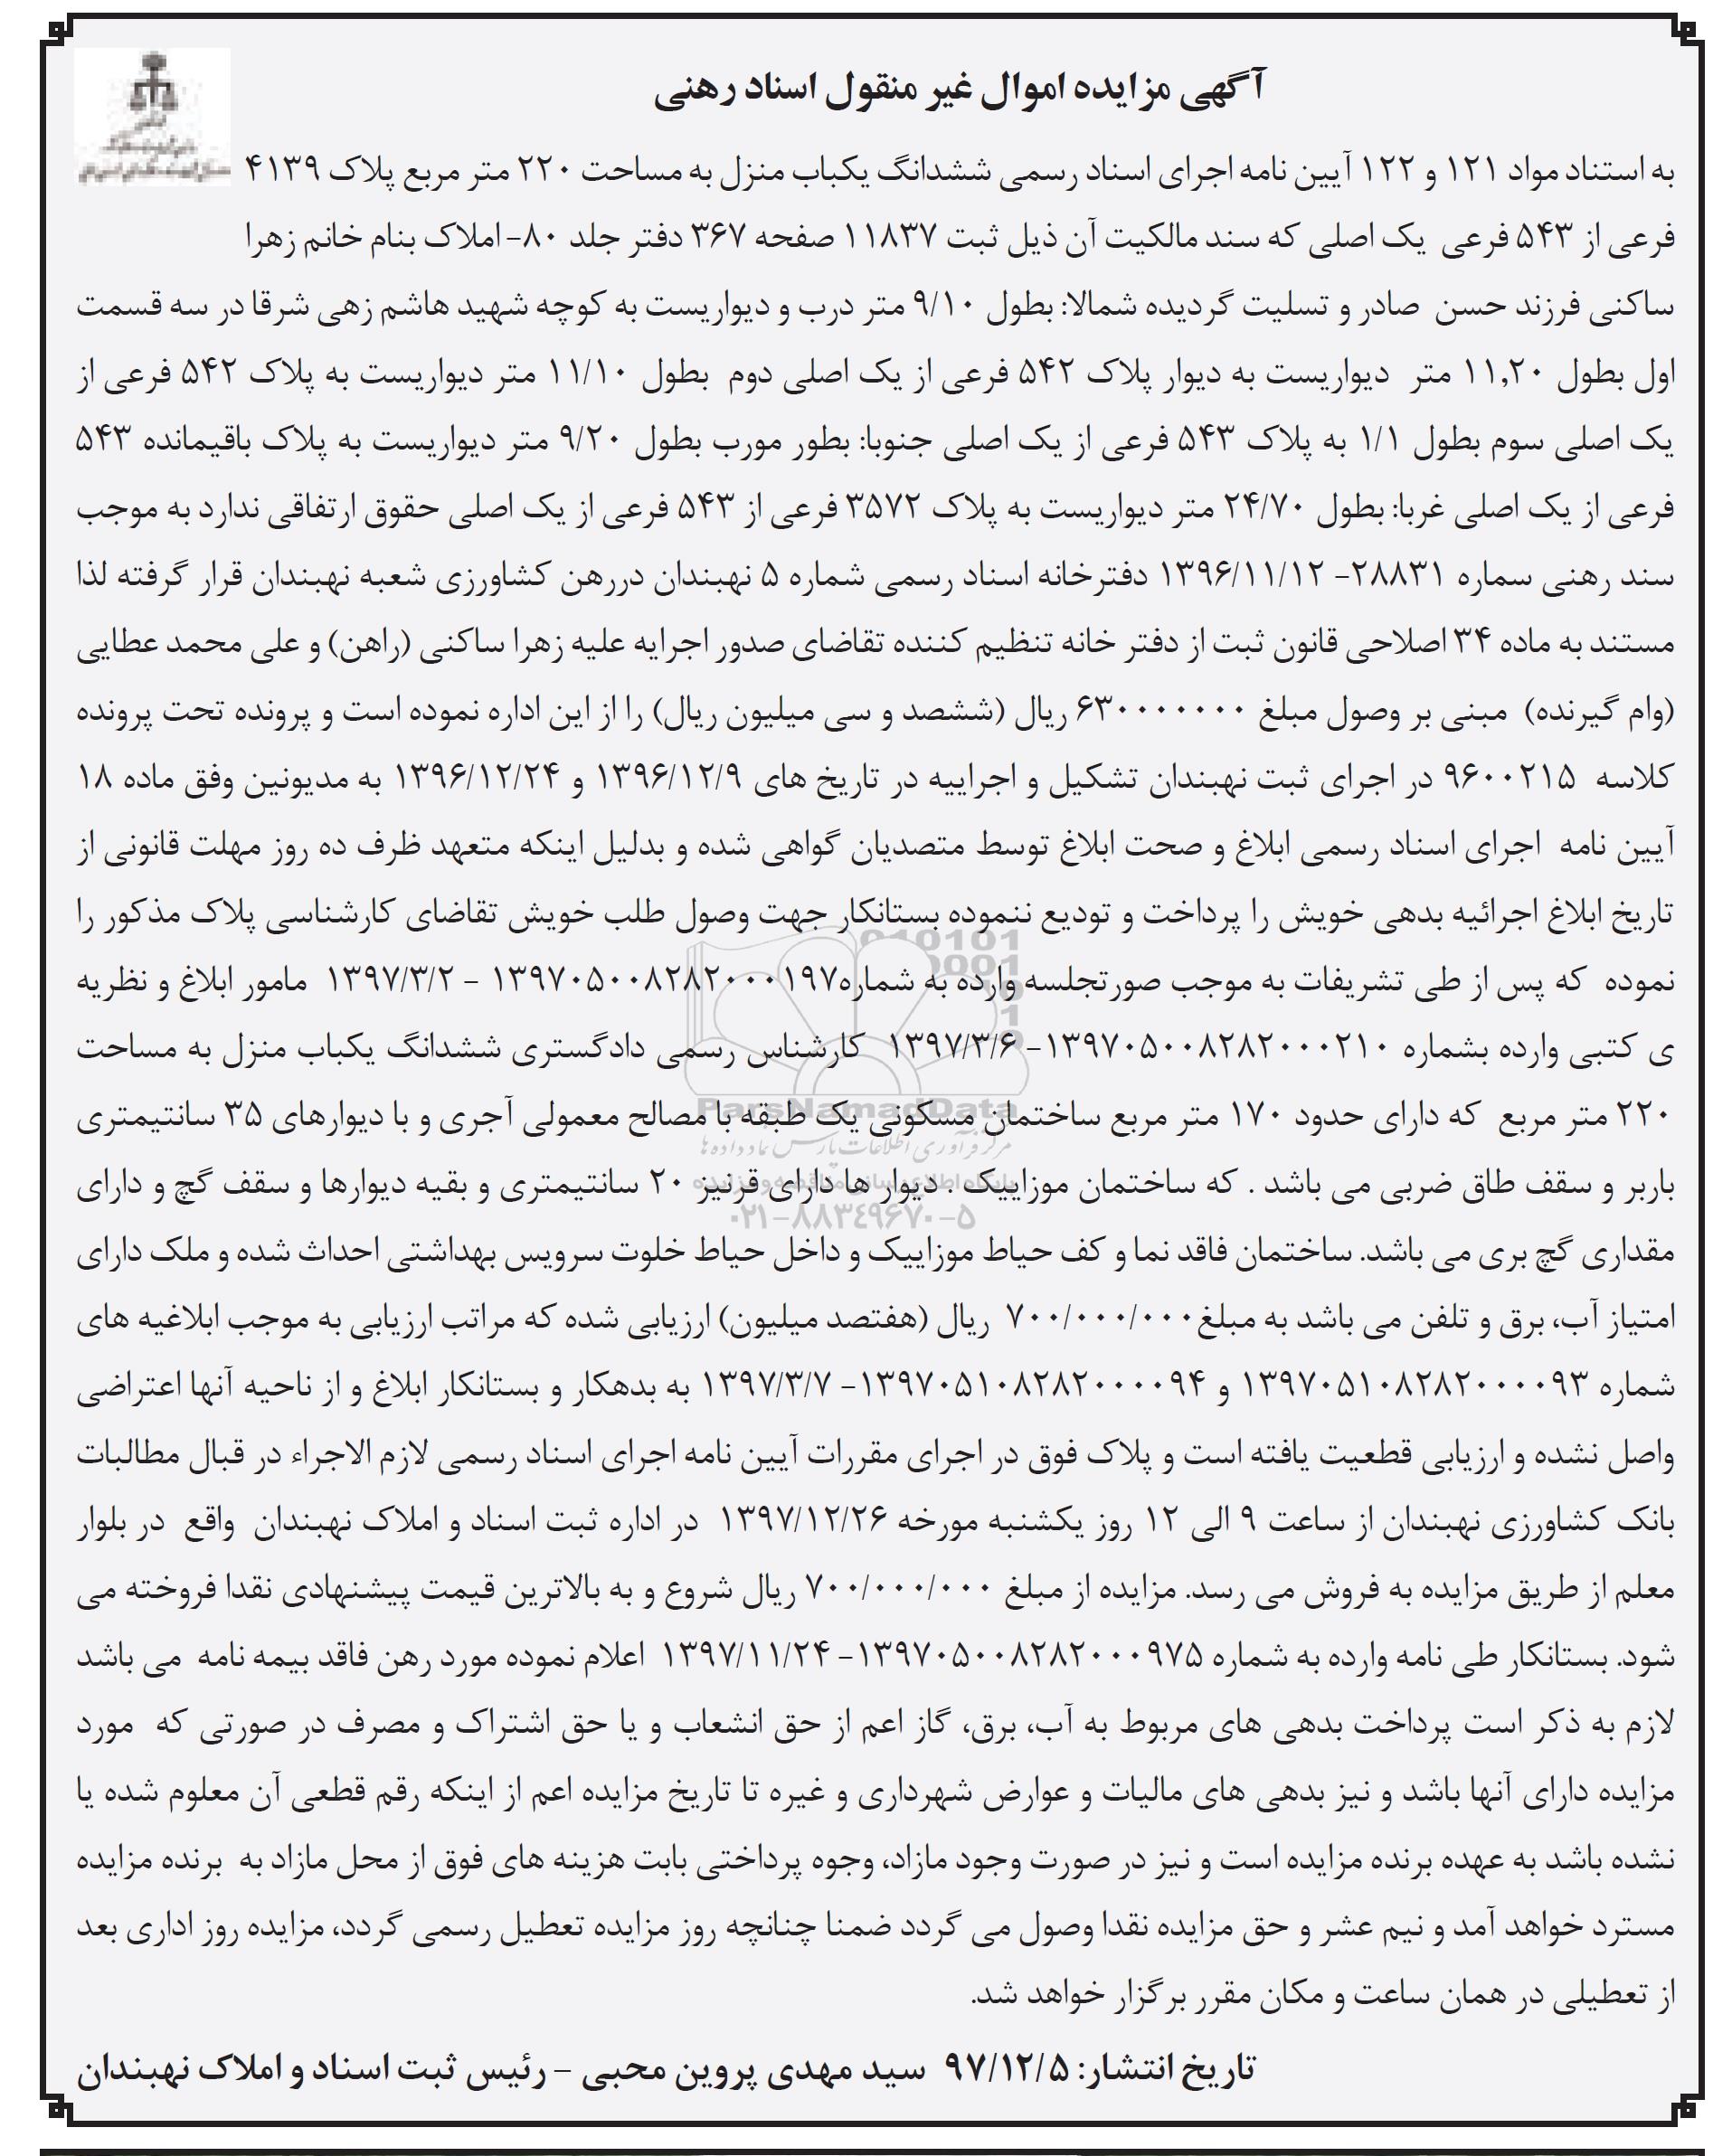 آگهی مزایده اموال غیر منقول اسناد رهنی
به استناد مواد ۱۲۱ و ۱۲۲ آیین نامه اجرای اسناد رسمی ششدانگ یکباب منزل به مساحت ۲۲۰ متر مربع پلاک ۴۱۳۹
فرعی از ۵۴۳ فرعی یک اصلی که سند مالکیت آن ذیل ثبت ۱۱۸۳۷ صفحه ۳۶۷ دفتر جلد ۸۰- املاک بنام خانم زهرا
ساکنی فرزند حسن صادر و تسلیت گردیده شمالا: بطول ۹/۱۰ متر درب و دیواریست به کوچه شهید هاشم زهی شرقا در سه قسمت
اول بطول ۱۱,۲۰ متر دیواریست به دیوار پلاک ۵۴۲ فرعی از یک اصلی دوم بطول ۱۱/۱۰ متر دیواریست به پلاک ۵۴۲ فرعی از
یک اصلی سوم بطول ۱/۱ به پلاک ۵۴۳ فرعی از یک اصلی جنوبا: بطور مورب بطول ۹/۲۰ متر دیواریست به پلاک باقیمانده ۵۴۳
فرعی از یک اصلی غربا: بطول ۲۴/۷۰ متر دیواریست به پلاک ۳۵۷۲ فرعی از ۵۴۳ فرعی از یک اصلی حقوق ارتفاقی ندارد به موجب
سند رهنی سماره ۲۸۸۳۱- ۱۳۹۶/۱۱/۱۲ دفترخانه اسناد رسمی شماره ۵ نهبندان دررهن کشاورزی شعبه نهبندان قرار گرفته لذا
مستند به ماده ۳۴ اصلاحی قانون ثبت از دفتر خانه تنظیم کننده تقاضای صدور اجرایه علیه زهرا ساکنی (راهن) و علی محمد عطایی
(وام گیرنده) مبنی بر وصول مبلغ ۶۳۰۰۰۰۰۰۰ ریال (ششصد و سی میلیون ریال) را از این اداره نموده است و پرونده تحت پرونده
کلاسه ۹۶۰۰۲۱۵ در اجرای ثبت نهبندان تشکیل و اجراییه در تاریخ های ۱۳۹۶/۱۲/۹ و ۱۳۹۶/۱۲/۲۴ به مدیونین وفق ماده ۱۸
آیین نامه اجرای اسناد رسمی ابلاغ و صحت ابلاغ توسط متصدیان گواهی شده و بدلیل اینکه متعهد ظرف ده روز مهلت قانونی از
تاریخ ابلاغ اجرائیه بدهی خویش را پرداخت و تودیع ننموده بستانکار جهت وصول طلب خویش تقاضای کارشناسی پلاک مذکور را
نموده که پس از طی تشریفات به موجب صورتجلسه وارده به شماره۱۳۹۷۰۵۰۰۸۲۸۲۰۰۰۱۹۷ - ۱۳۹۷/۳/۲ مامور ابلاغ و نظریه
ی کتبی وارده بشماره ۱۳۹۷۰۵۰۰۸۲۸۲۰۰۰۲۱۰- ۱۳۹۷/۳/۶ کارشناس رسمی دادگستری ششدانگ یکباب منزل به مساحت
۲۲۰ متر مربع که دارای حدود ۱۷۰ متر مربع ساختمان مسکونی یک طبقه با مصالح معمولی آجری و با دیوارهای ۳۵ سانتیمتری
باربر و سقف طاق ضربی می باشد . که ساختمان موزاییک . دیوار ها دارای قرنیز ۲۰ سانتیمتری و بقیه دیوارها و سقف گچ و دارای
مقداری گچ بری می باشد. ساختمان فاقد نما و کف حیاط موزاییک و داخل حیاط خلوت سرویس بهداشتی احداث شده و ملک دارای
امتیاز آب، برق و تلفن می باشد به مبلغ۷۰۰/۰۰۰/۰۰۰ ریال (هفتصد میلیون) ارزیابی شده که مراتب ارزیابی به موجب ابلاغیه های
شماره ۱۳۹۷۰۵۱۰۸۲۸۲۰۰۰۰۹۳ و ۱۳۹۷۰۵۱۰۸۲۸۲۰۰۰۰۹۴- ۱۳۹۷/۳/۷ به بدهکار و بستانکار ابلاغ و از ناحیه آنها اعتراضی
واصل نشده و ارزیابی قطعیت یافته است و پلاک فوق در اجرای مقررات آیین نامه اجرای اسناد رسمی لازم الاجراء در قبال مطالبات
بانک کشاورزی نهبندان از ساعت ۹ الی ۱۲ روز یکشنبه مورخه ۱۳۹۷/۱۲/۲۶ در اداره ثبت اسناد و املاک نهبندان واقع در بلوار
معلم از طریق مزایده به فروش می رسد. مزایده از مبلغ ۷۰۰/۰۰۰/۰۰۰ ریال شروع و به بالاترین قیمت پیشنهادی نقدا فروخته می
شود. بستانکار طی نامه وارده به شماره ۱۳۹۷۰۵۰۰۸۲۸۲۰۰۰۹۷۵- ۱۳۹۷/۱۱/۲۴ اعلام نموده مورد رهن فاقد بیمه نامه می باشد
لازم به ذکر است پرداخت بدهی های مربوط به آب، برق، گاز اعم از حق انشعاب و یا حق اشتراک و مصرف در صورتی که مورد
مزایده دارای آنها باشد و نیز بدهی های مالیات و عوارض شهرداری و غیره تا تاریخ مزایده اعم از اینکه رقم قطعی آن معلوم شده یا
نشده باشد به عهده برنده مزایده است و نیز در صورت وجود مازاد، وجوه پرداختی بابت هزینه های فوق از محل مازاد به برنده مزایده
مسترد خواهد آمد و نیم عشر و حق مزایده نقدا وصول می گردد ضمنا چنانچه روز مزایده تعطیل رسمی گردد، مزایده روز اداری بعد
از تعطیلی در همان ساعت و مکان مقرر برگزار خواهد شد.
تاریخ انتشار: ۹۷/۱۲/۵ سید مهدی پروین محبی – رئیس ثبت اسناد و املاک نهبندان
ParsNamadData
مرکز فرآوری اطلاعات پارس نماد داده ها
پایگاه اطلاع رسانی مناقصه و مزایده
۰۲۱-۸۸۳۴۹۶۷۰-۵